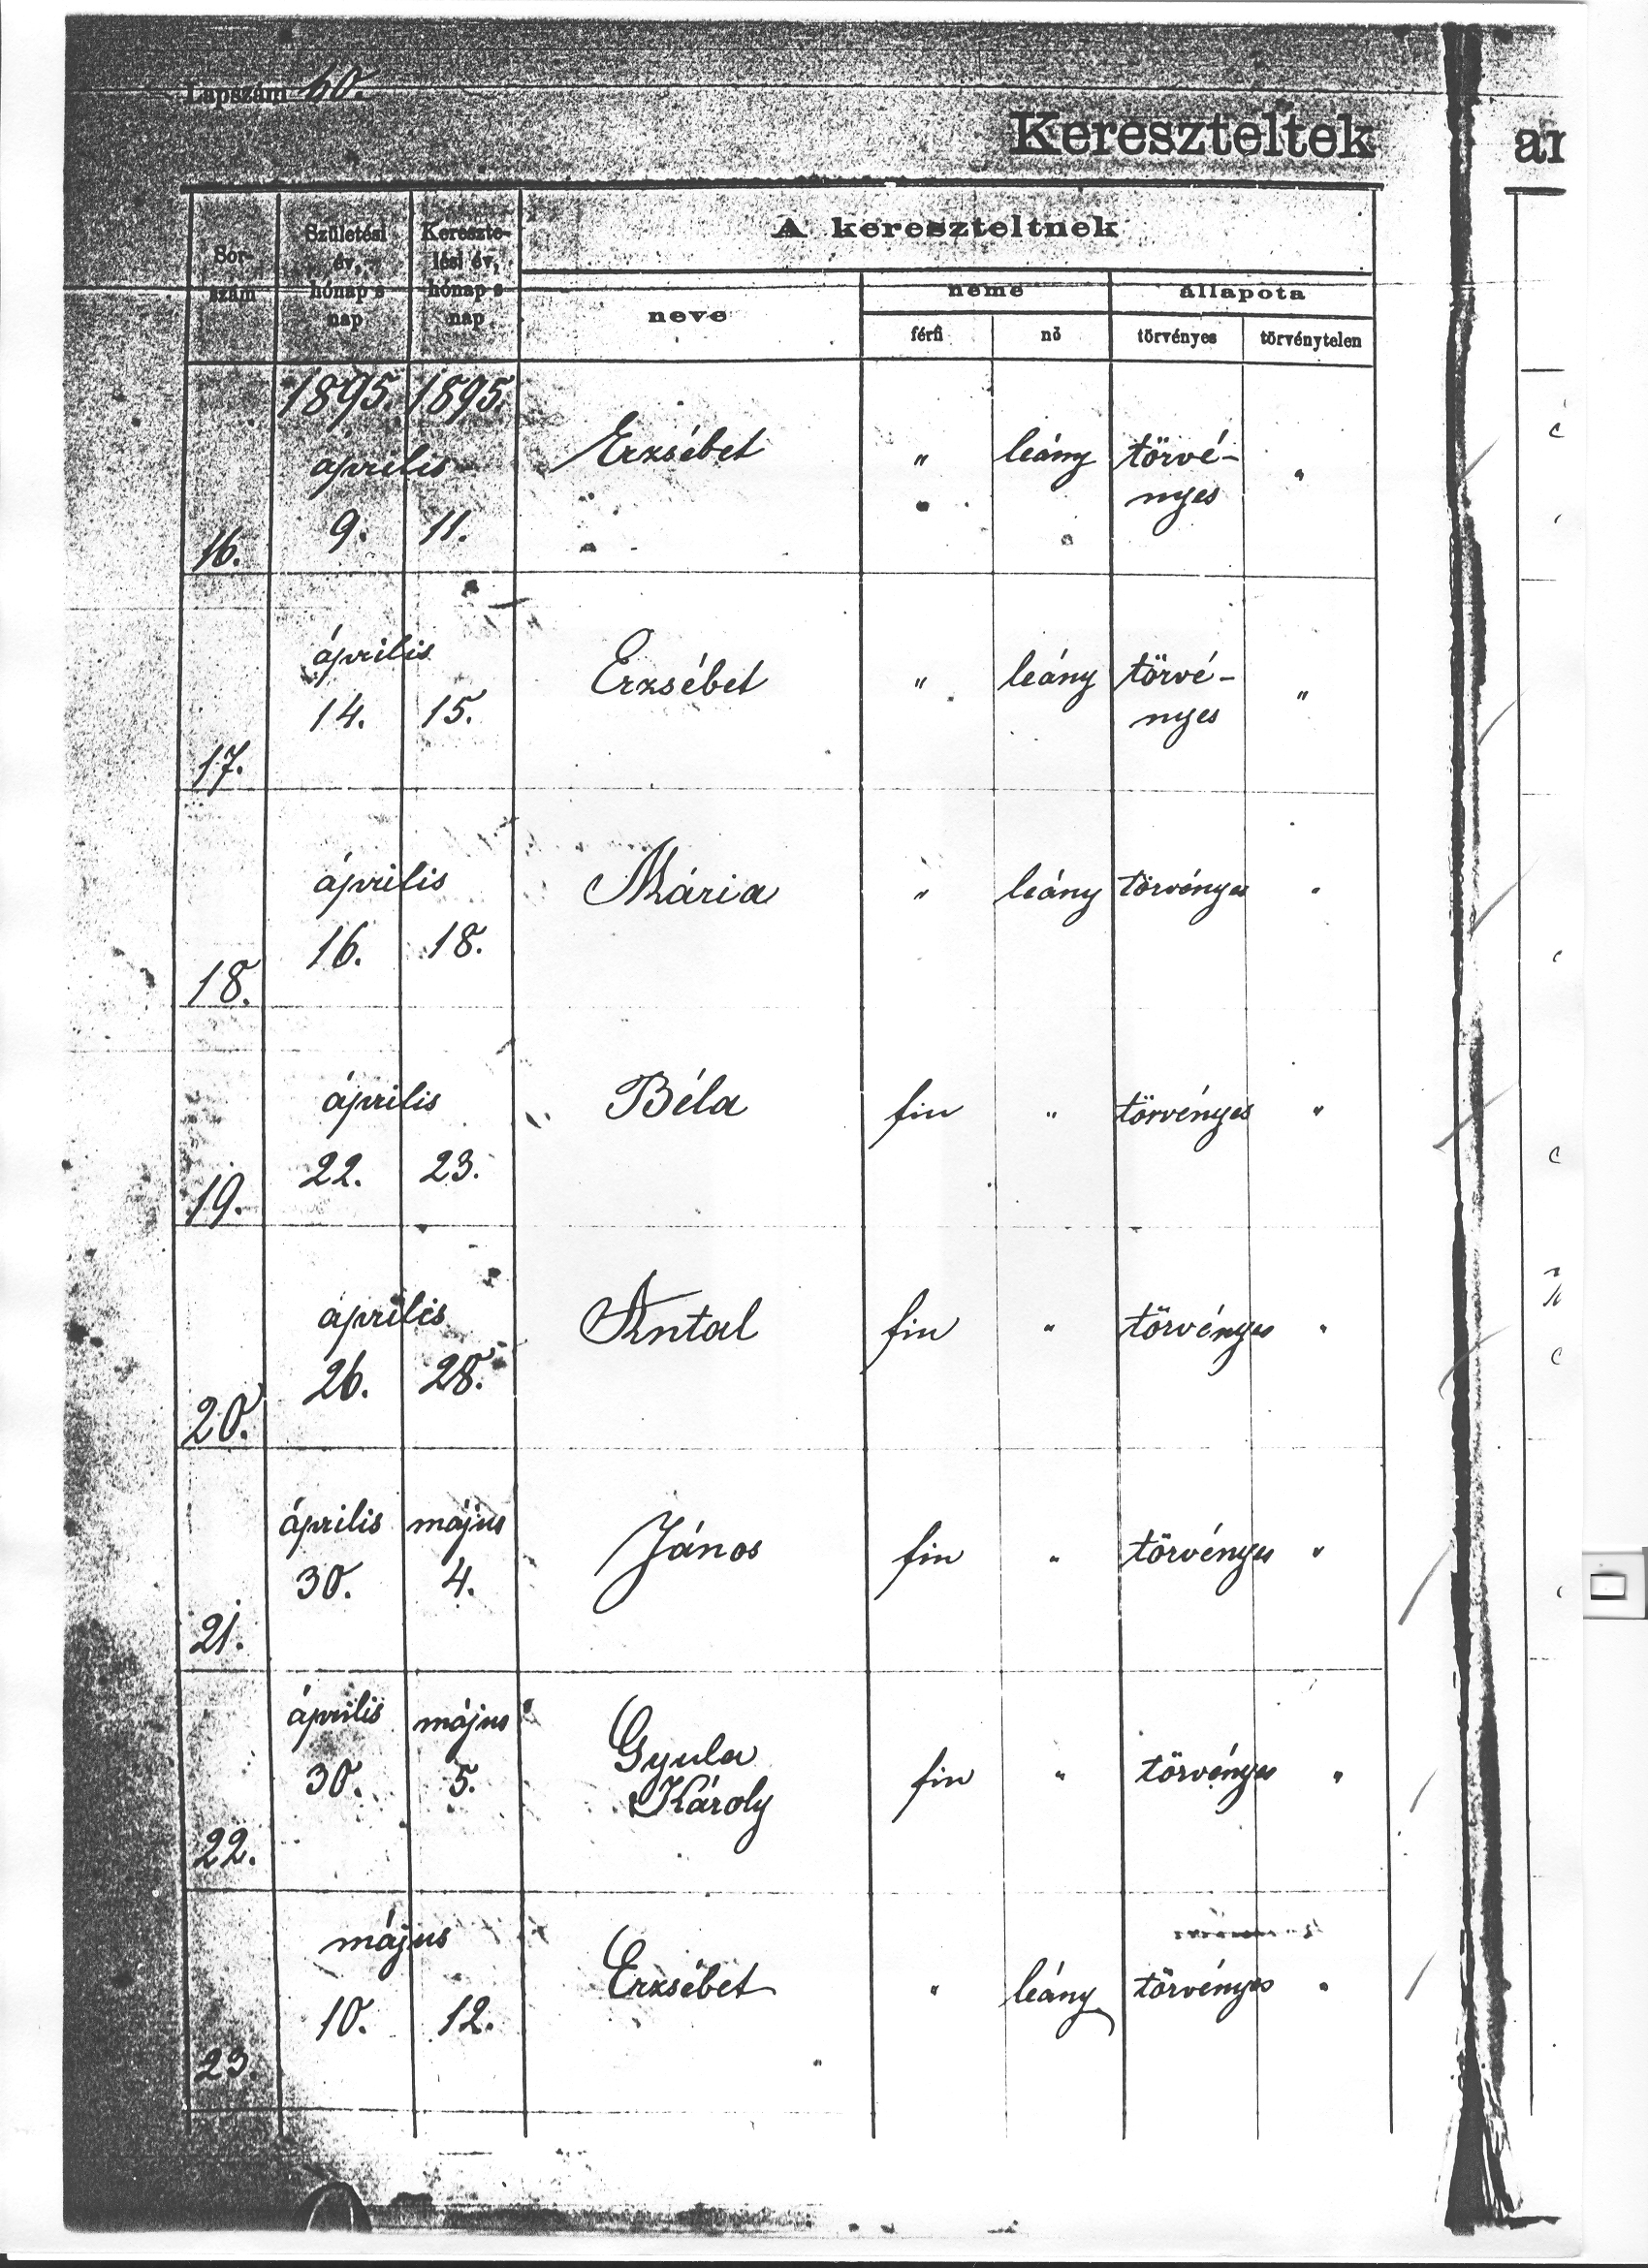 Lapszám 60.
Kereszteltek
Sor-
szám
Születési
év,
hónap s
nap
Kereszte-
lési év,
hónap s
nap
A kereszteltnek
neve
neme
állapota
férfi
nő
törvényes
törvénytelen
1895. 1895.
április
9. 11.
16.
Erzsébet
" leány törvé-
nyes "
április
14. 15.
17.
Erzsébet
" leány törvé-
nyes "
április
16. 18.
18.
Mária " leány törvényes "
április
22. 23.
19.
Béla fiu " törvényes "
április
26. 28.
20.
Antal fiu " törvényes "
április május
30. 4.
21.
János fiu " törvényes "
április május
30. 5.
22.
Gyula
Károly
fiu " törvényes "
május
10. 12.
23.
Erzsébet " leány törvényes "